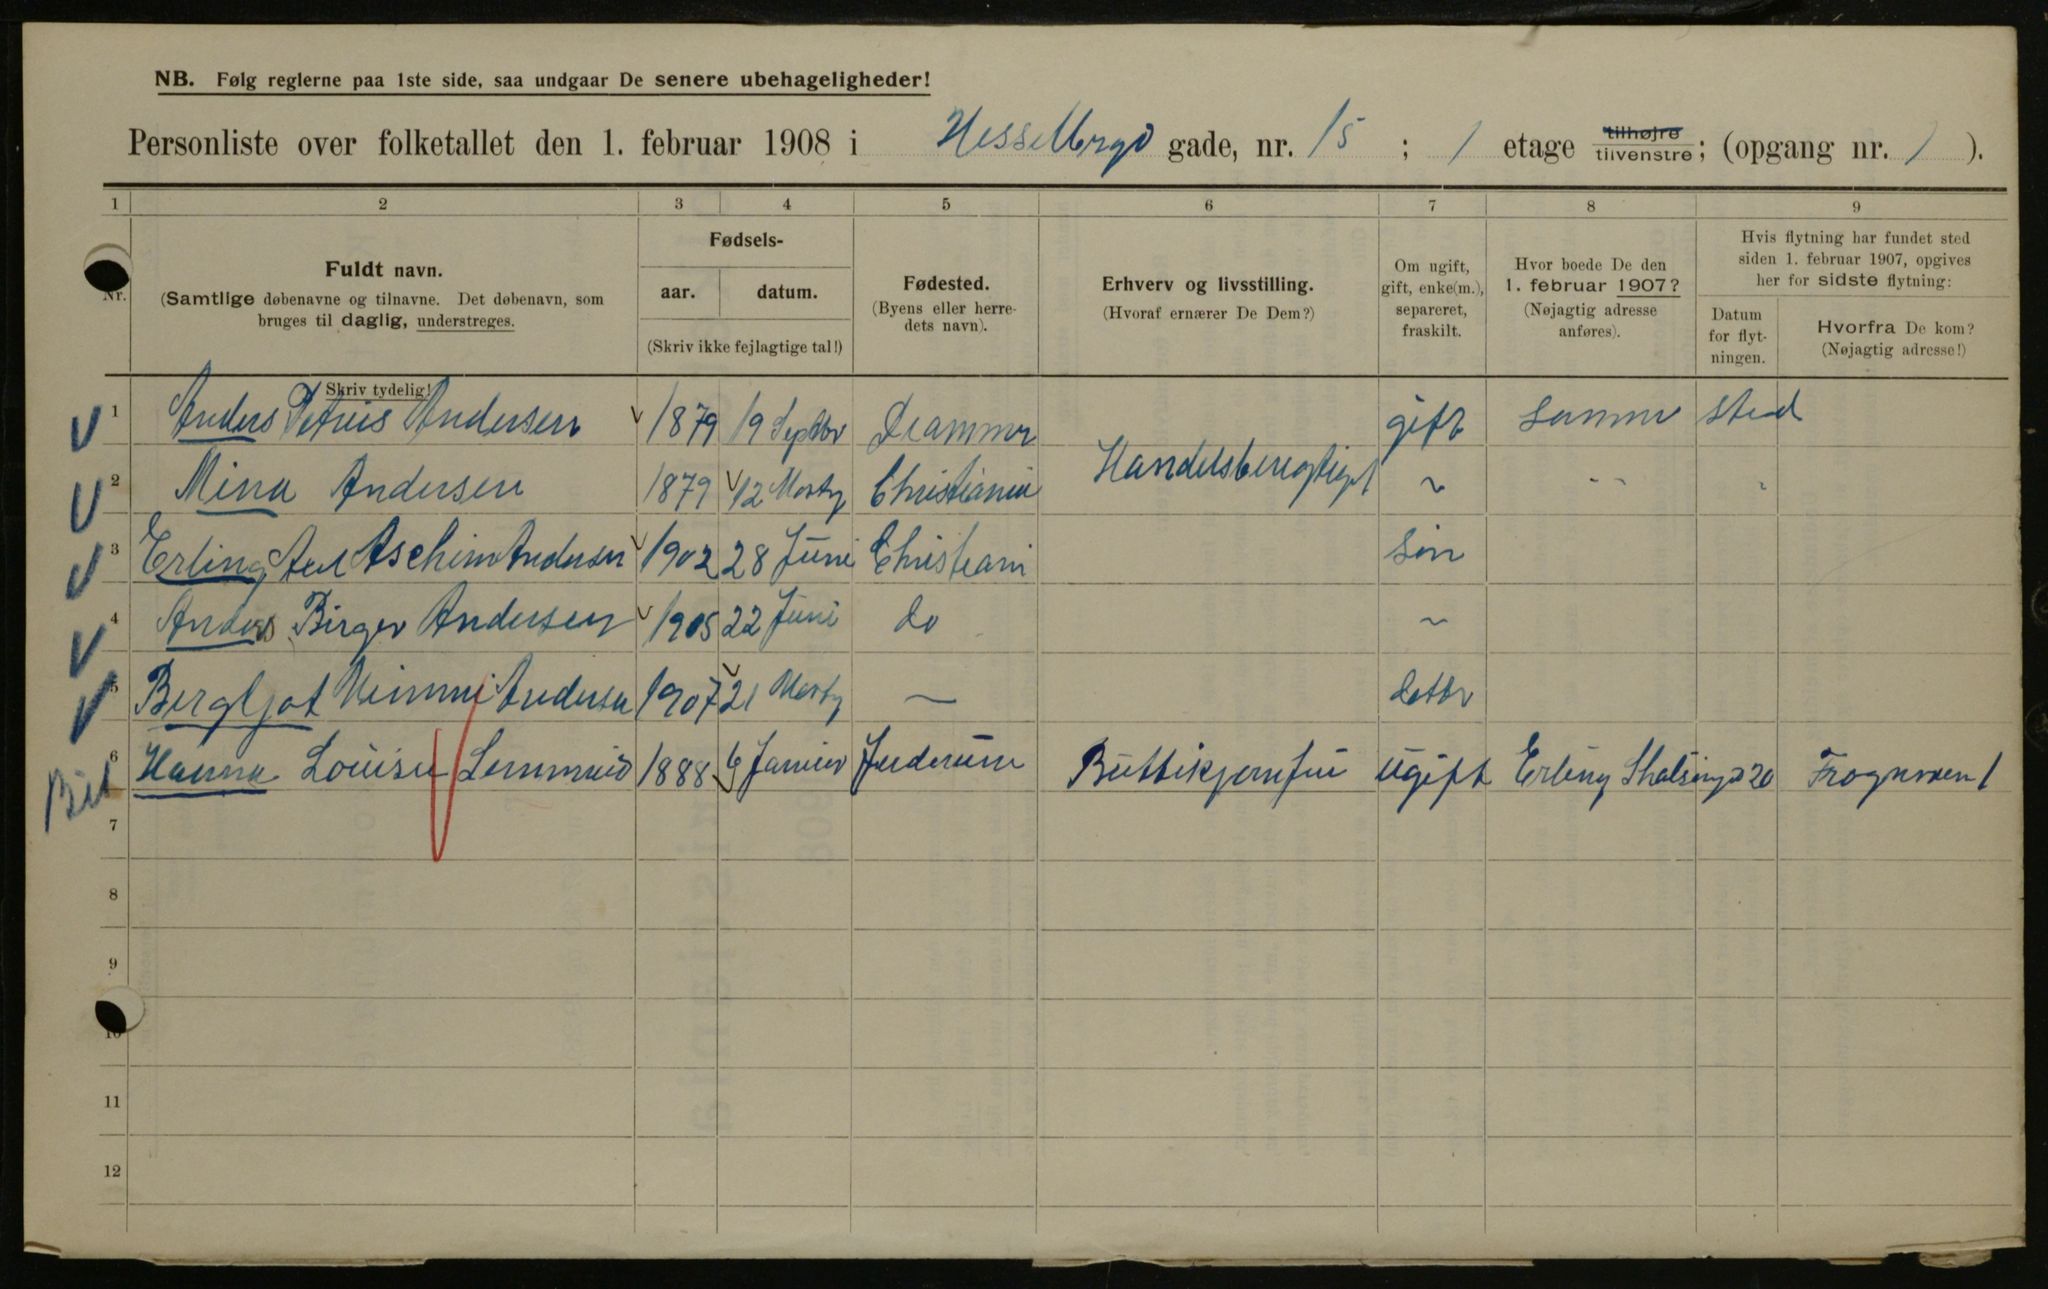 NB. Følg reglerne paa 1ste side, saa undgaar De senere ubehageligheder!
Personliste over folketallet den 1. februar 1908 i Hesselbrgd gade, nr. 15 ; 1 etage tilhøjre tilvenstre; (opgang nr. 1 ).
1 2 3 4 5 6 7 8 9
Nr.
Fuldt navn.
(Samtlige døbenavne og tilnavne. Det døbenavn, som
bruges til daglig, understreges.
Skriv tydelig!
Fødsels-
aar. datum.
(Skriv ikke fejlagtige tal!)
Fødested.
(Byens eller herre-
dets navn).
Erhverv og livsstilling.
(Hvoraf ernærer De Dem?)
Om ugift,
gift, enke(m.),
separeret,
fraskilt.
Hvor boede De den
1. februar 1907?
(Nøjagtig adresse
anføres).
Hvis flytning har fundet sted
siden 1. februar 1907, opgives
her for sidste flytning:
Datum
for flyt-
ningen.
Hvorfra De kom?
(Nøjagtig adresse!)
1 Anders Petrus Andersen 1879 19 Septbr Drammen gift samme sted
2 Mina Andersen 1879 12 Martz Christiania Handelsberegtiget ~ - - "
3 Erling Axel Andersen 1902 28 Juni Christiani søn
4 Anders Birger Andersen 1905 22 Juni do ~
5 Bergljot Andersen 1907 21 Martz — datter
6 Hanna Louise 1888 6 Januar ugift Erling Skalsingd 20 Frognerven 1
7
8
9
10
11
12